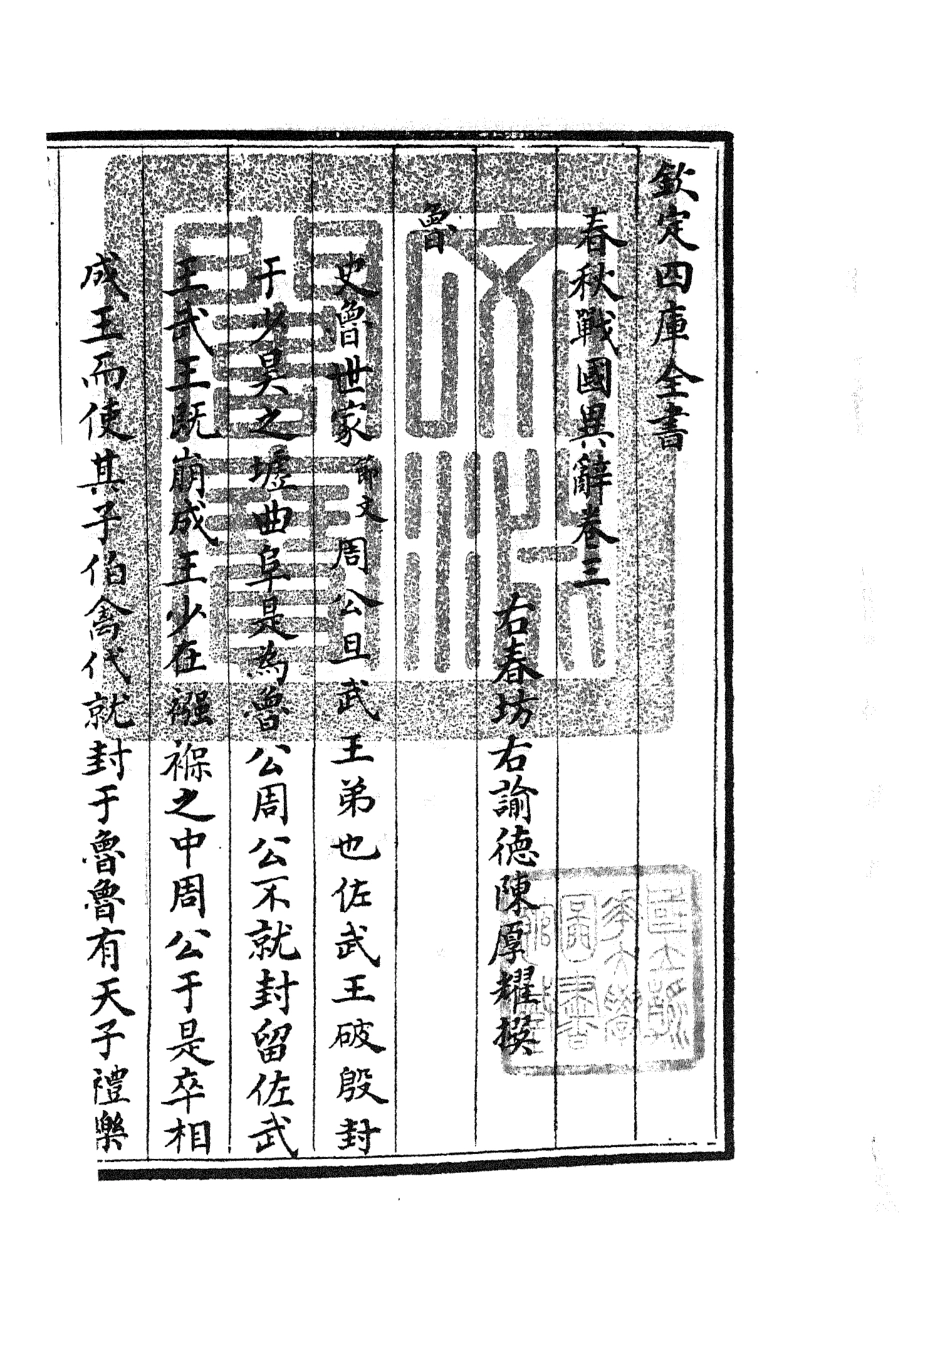 欽定四庫全書
春秋戰國異辭卷三
右春坊右諭德陳厚耀撰
魯
史魯世家節文周公旦武王弟也佐武王破殷封
于少昊之墟曲阜是為魯公周公不就封留佐武
王武王既崩成王少在襁褓之中周公于是卒相
成王而使其子伯禽代就封于魯魯有天子禮樂
文淵閣寶
國立浙江大學圖書館藏書